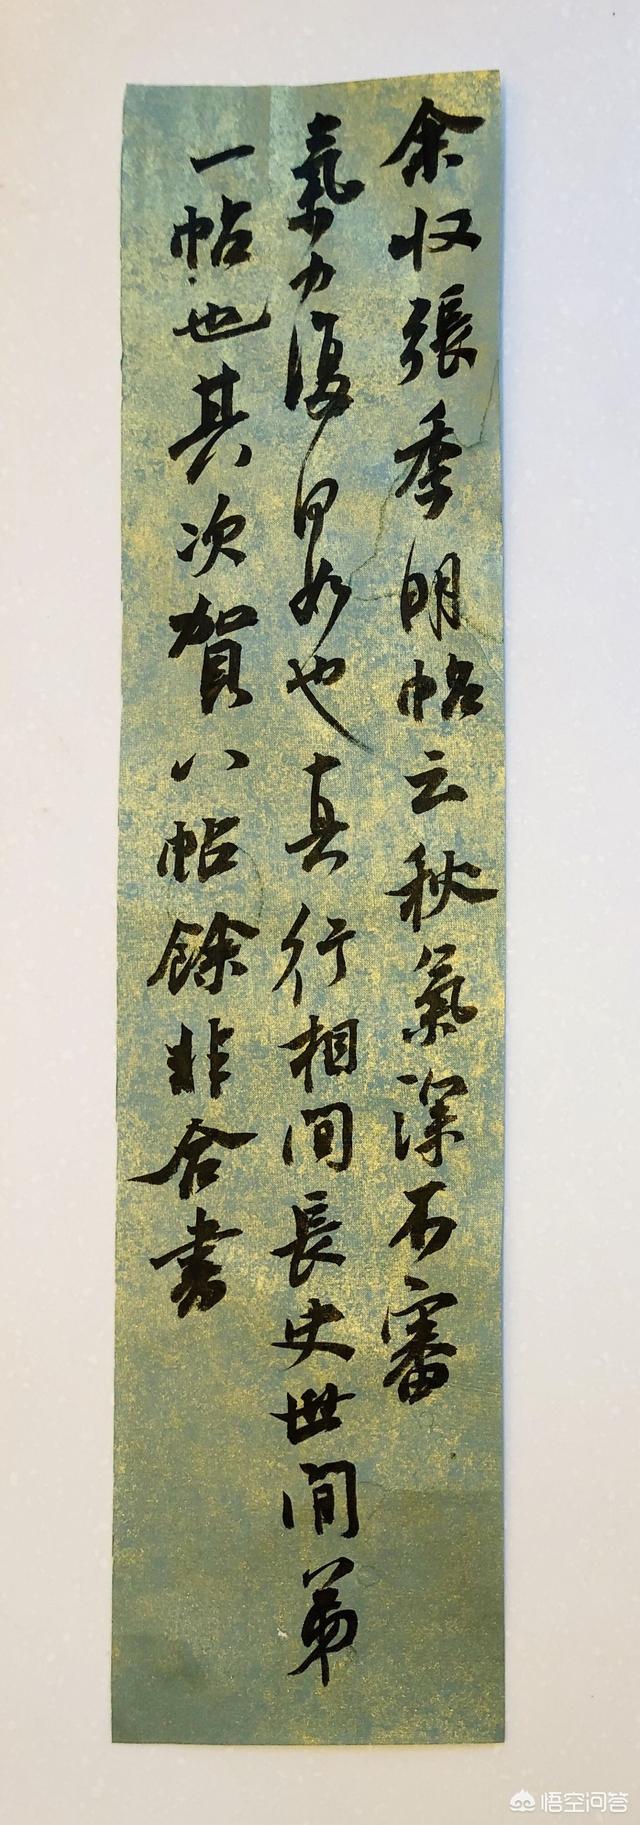 余収張季明帖云秋氣深不審
氣力復何如也真行相間長史世間苐
一帖也其次賀八帖餘非合書
悟空问答